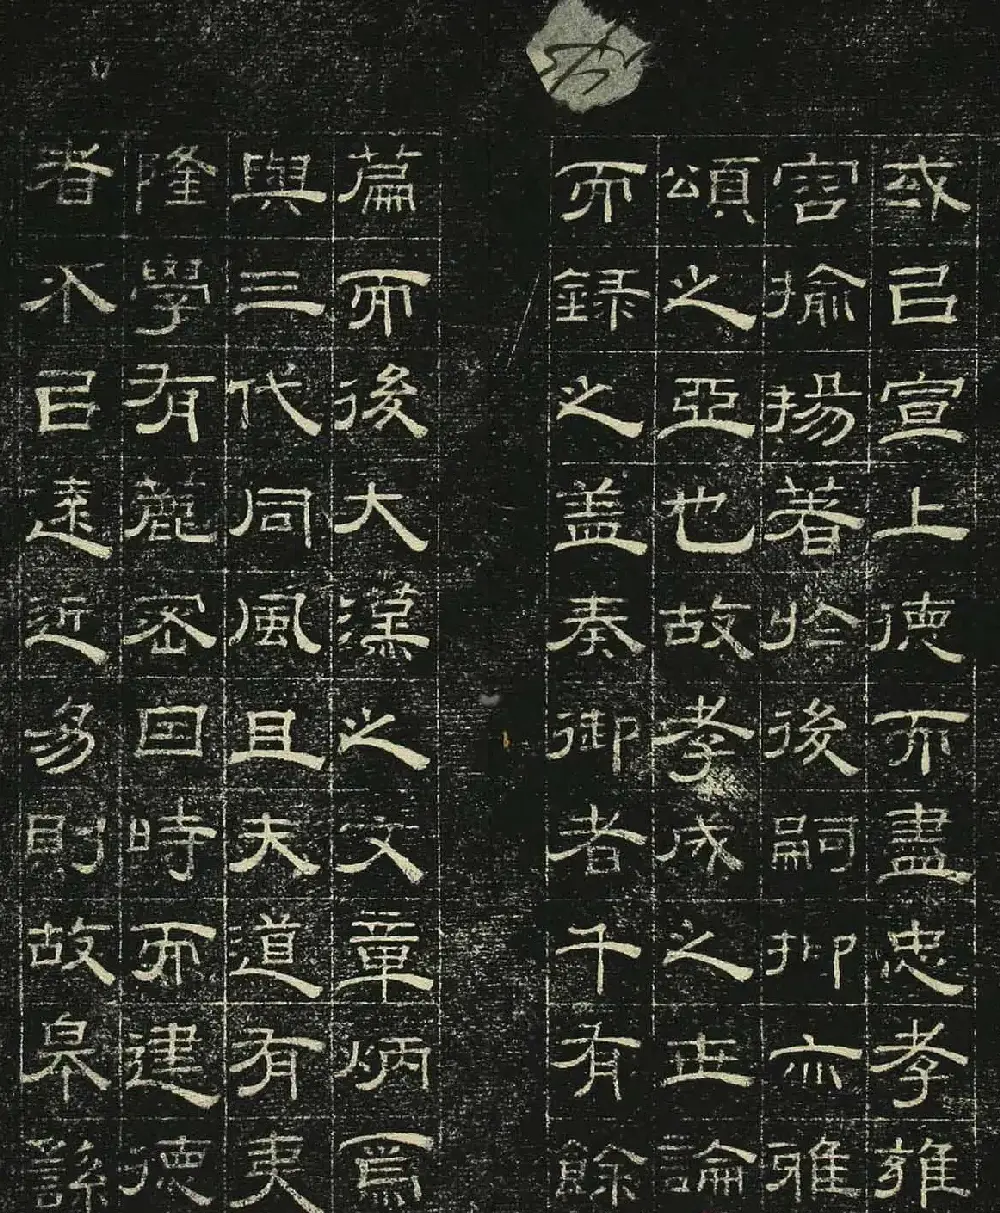 或㠯宣上德而盡忠孝雍
容揄揚著於後嗣抑亦雅
頌之亞也故孝成之世論
而録之盖奏御者千有餘
篇而後大漢之文章炳焉
與三代同風且夫道有夷
隆學有麤密因時而建德
者不㠯遠近易則故皋繇